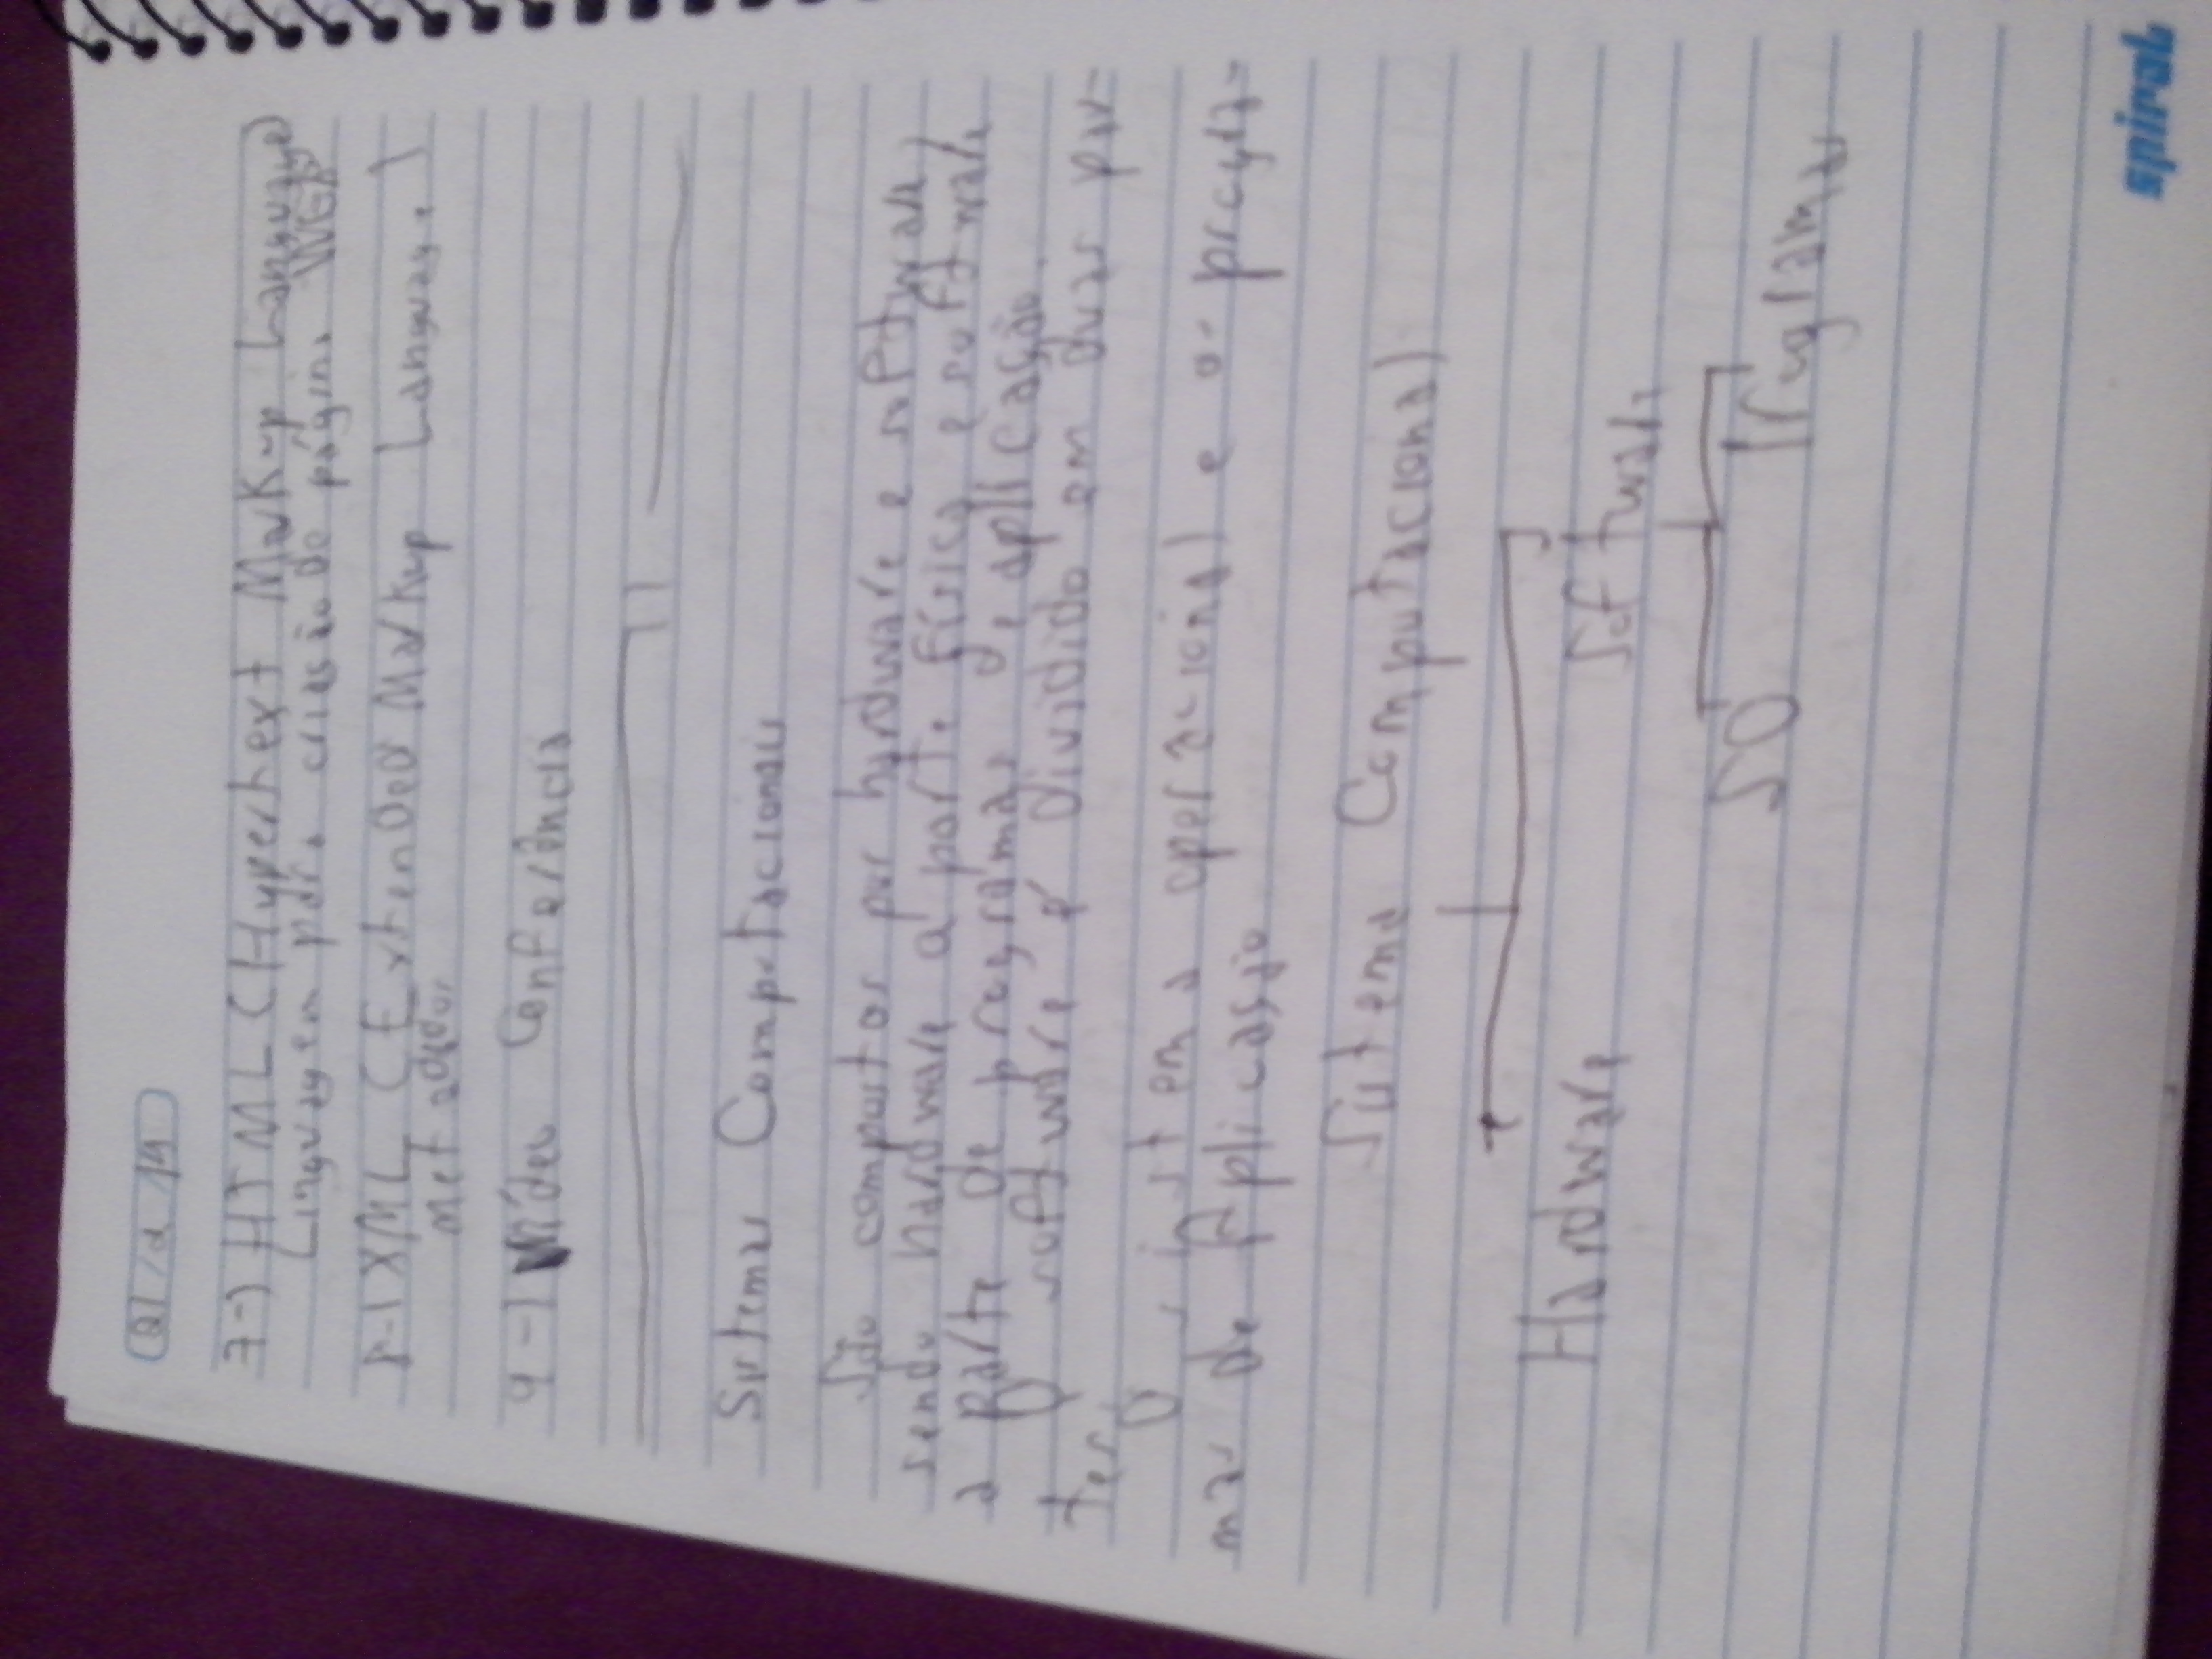 21/2/19
7-) HTML (Hypertext Markup Language)
Linguagem para criação de página WEB
8-) XML (Extended Markup Language)
met adados
9-) Vídeo Conferência
Sistemas Computacionais
São compostos por hardware e software,
sendo hardware a parte física e software
a parte de programas de aplicação.
O software é dividido em duas par-
tes:
O sistema operacional e os progra-
mas de Aplicação
Sistema Computacional
Hardware
Software
SO
Programas
spiral